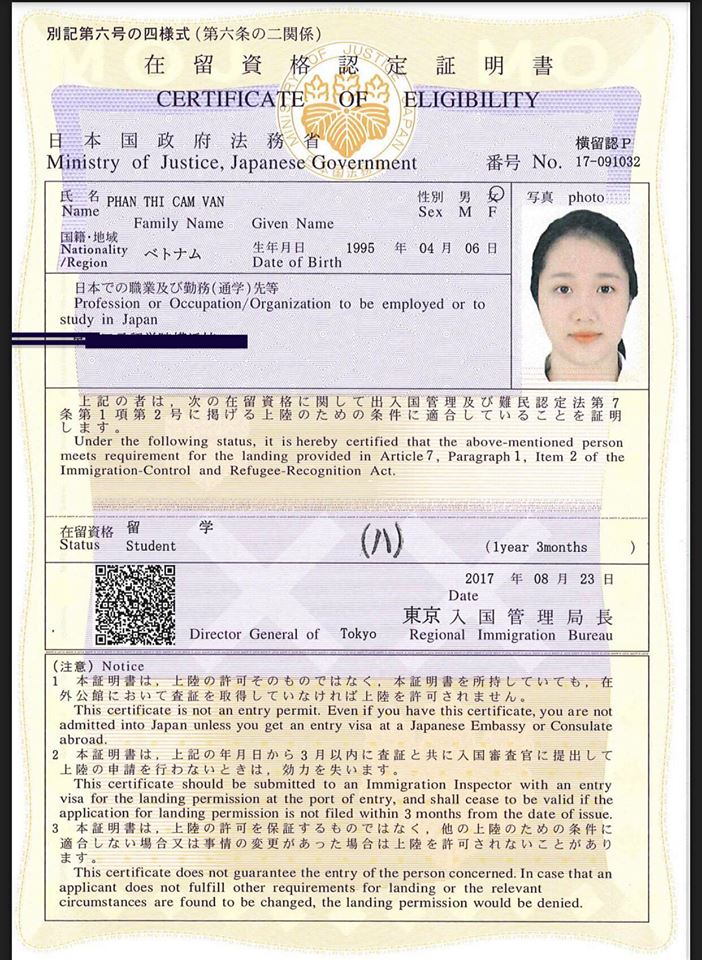 別記第六号の四様式(第六条の二関係)
在留資格認定証明書
CERTIFICATE OF ELIGIBILITY
MINISTRY OF JUSTICE JAPAN
日本国政府法務省
Ministry of Justice, Japanese Government
横留認P
番号 No. 17-091032
氏名 PHAN THI CAM VAN
Name
Family Name Given Name
性別 男 女
Sex M F
写真 photo
国籍・地域
Nationality
/Region
ベトナム
生年月日 1995 年 04 月 06 日
Date of Birth
日本での職業及び勤務(通学)先等
Profession or Occupation/Organization to be employed or to
study in Japan
上記の者は,次の在留資格に関して出入国管理及び難民認定法第7
条第1項第2号に掲げる上陸のための条件に適合していることを証明
します。
Under the following status, it is hereby certified that the above-mentioned person
meets requirement for the landing provided in Article 7, Paragraph 1, Item 2 of the
Immigration-Control and Refugee-Recognition Act.
在留資格 留 学
Status Student
(ハ)
(1year 3months )
2017 年 08 月 23 日
Date
東京入国管理局長
Director General of Tokyo Regional Immigration Bureau
(注意) Notice
1 本証明書は,上陸の許可そのものではなく,本証明書を所持していても,在
外公館において査証を取得していなければ上陸を許可されません。
This certificate is not an entry permit. Even if you have this certificate, you are not
admitted into Japan unless you get an entry visa at a Japanese Embassy or Consulate
abroad.
2 本証明書は,上記の年月日から3月以内に査証と共に入国審査官に提出して
上陸の申請を行わないときは,効力を失います。
This certificate should be submitted to an Immigration Inspector with an entry
visa for the landing permission at the port of entry, and shall cease to be valid if the
application for landing permission is not filed within 3 months from the date of issue.
3 本証明書は,上陸の許可を保証するものではなく,他の上陸のための条件に
適合しない場合又は事情の変更があった場合は上陸を許可されないことがあり
ます。
This certificate does not guarantee the entry of the person concerned. In case that an
applicant does not fulfill other requirements for landing or the relevant
circumstances are found to be changed, the landing permission would be denied.